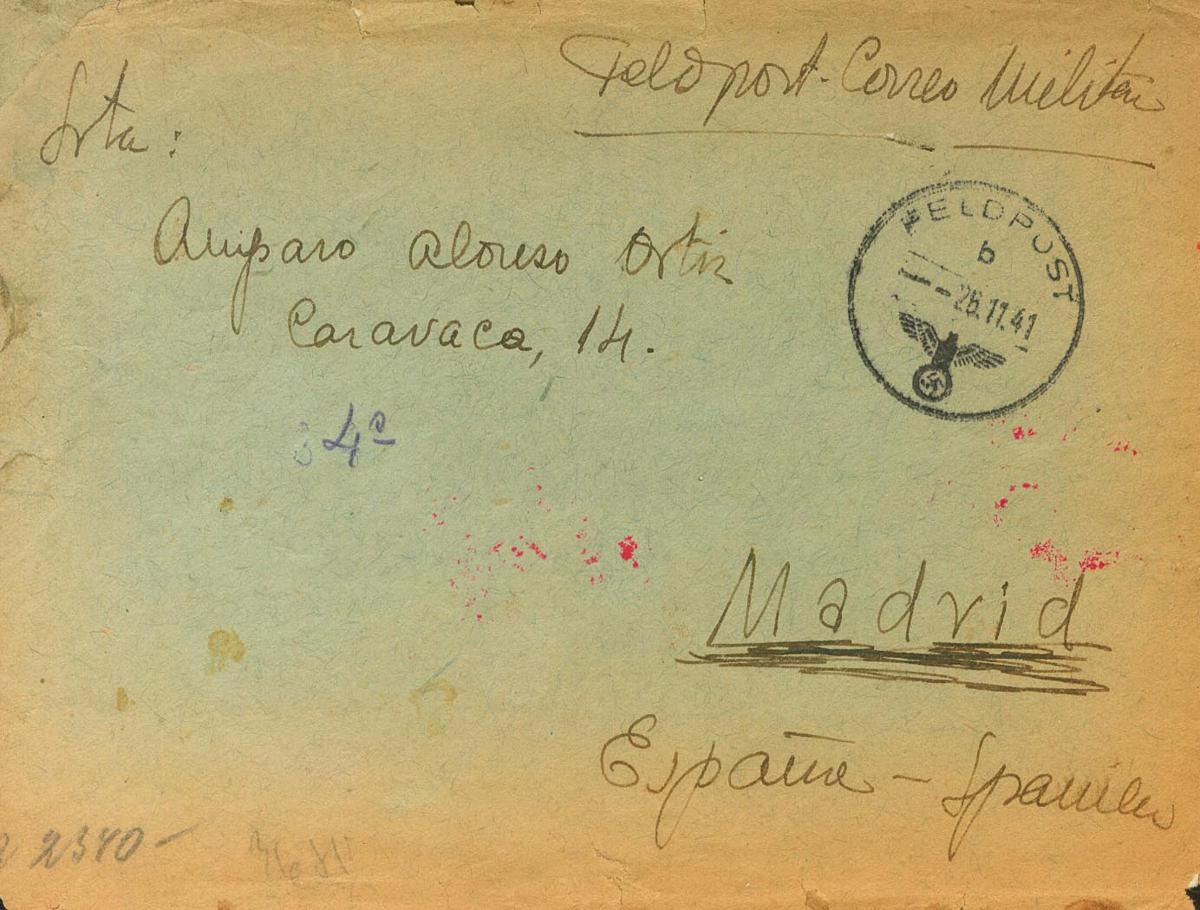 Feldpost-Correo Militar
Srta:
Amparo Alonso Ortiz
Caravaca, 14.
FELDPOST
b
26.11.41
4º
Madrid
España - Spanien
2340-